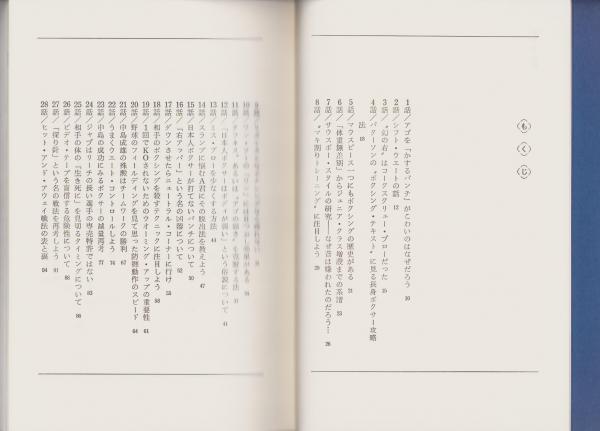 もくじ
1話/アゴを「かするパンチ」がこわいのはなぜだろう 10
2話/シフト・ウエートの話 12
3話/〝幻の右〟はコークスクリュー・ブローだった 15
4話/パターソンの〝ボクシング・テキスト〟に見る長身ボクサー攻略
法 18
5話/マウスピース一つにもボクシングの歴史がある 21
6話/「体重無差別」からジュニア・クラス増設までの系譜 23
7話/サウスポー・スタイルの研究――なぜ昔は嫌われたのだろう… 26
8話/〝マキ割りトレーニング〟に注目しよう 29
9話/
10話/
11話/
12話/「日本人ボクサーは」という俗説について 41
13話/ミス・ブローを少なくする方法 44
14話/スランプに悩むA君にその脱出法を教えよう 47
15話/日本人ボクサーが打てないパンチについて 50
16話/「右アッパー」という名の凶器について 52
17話/ダウンさせたらニュートラル・コーナーに行け 55
18話/相手のボクシングを殺すテクニックに注目しよう 58
19話/1回でKOされないためのウオーミング・アップの重要性 61
20話/野球のフィールディングを見て思った防御動作のスピード 64
21話/中島成雄の殊勲はチームワークの勝利 67
22話/うまくウエート・コントロールしよう 74
23話/中島の成功にみるボクサーの減量再考 77
24話/ジャブはリーチの長い選手の専売特許ではない 83
25話/相手の体の「生き死に」を見切るタイミングについて 86
26話/ビデオ・テープを盲信する危険性について 88
27話/「探り針」という名の戦法を再考しよう 91
28話/ヒット・アンド・アウェイ戦法の表と裏 94